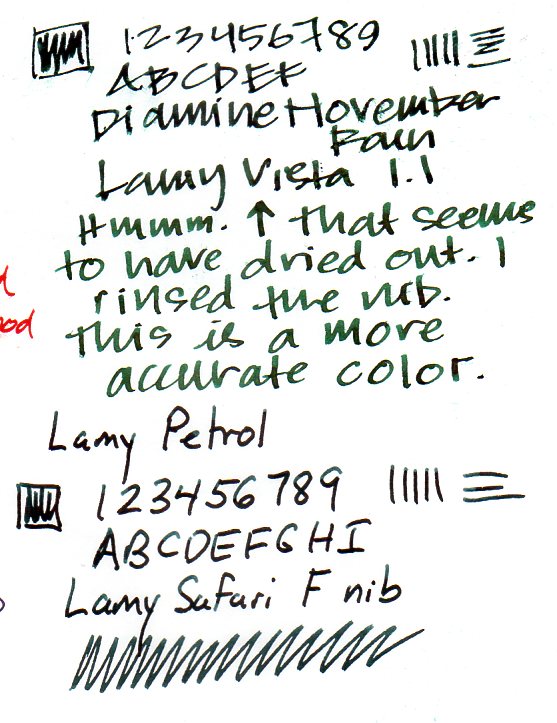 123456789
ABCDEF
Diamine November
Rain
Lamy Vista 1.1
Hmmm. ↑ that seems
to have dried out. I
rinsed the nib.
this is a more
accurate color.
Lamy Petrol
123456789
ABCDEFGHI
Lamy Safari F nib